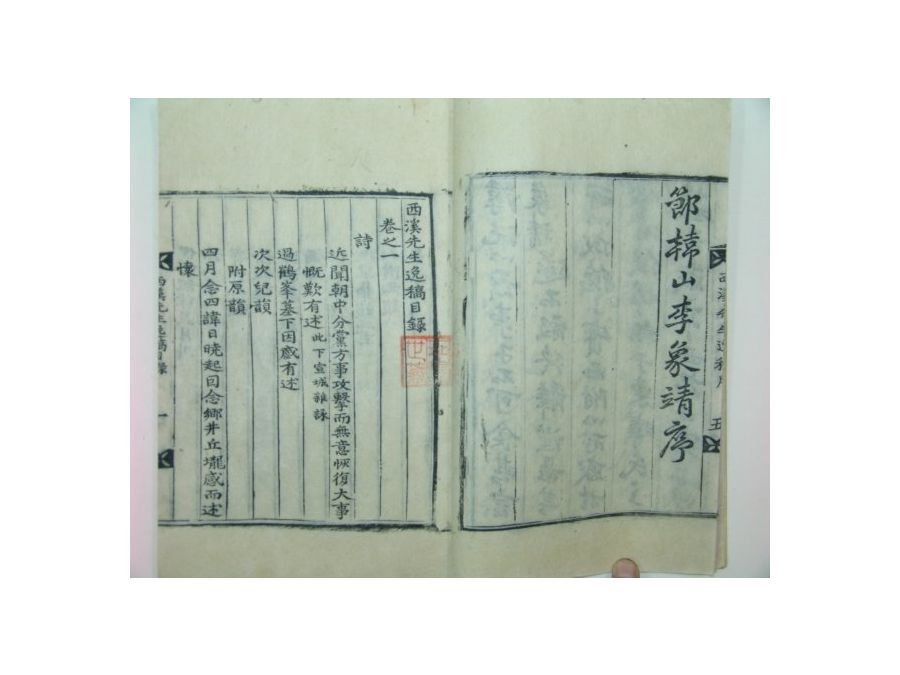 節韓山李象靖序
西溪先生逸稿目錄
卷之一
詩
近聞朝中分黨方事攻擊而無意恢復大事
慨歎有述 此下宣城雜詠
過鶴峯墓下因感有述
次次兒韻
附原韻
四月念四諱日曉起因念鄉井丘壠感而述
懷
西溪先生逸稿目錄
一